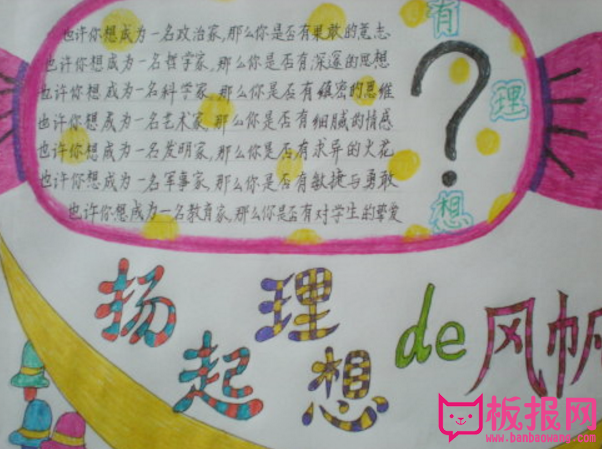 也许你想成为一名政治家,那么你是否有果敢的意志
也许你想成为一名哲学家,那么你是否有深邃的思想
也许你想成为一名科学家,那么你是否有缜密的思维
也许你想成为一名艺术家,那么你是否有细腻的情感
也许你想成为一名发明家,那么你是否有求异的火花
也许你想成为一名军事家,那么你是否有敏捷与勇敢
也许你想成为一名教育家,那么你是否有对学生的挚爱
有理想
?
扬起理想de风帆
板报网
www.banbaowang.com